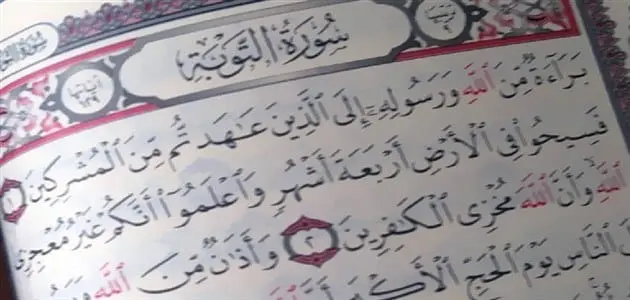 سُورَةُ التَّوْبَةِ
ترتيبها ٩
آياتها ١٢٩
بَرَآءَةٌ مِّنَ ٱللَّهِ وَرَسُولِهِۦٓ إِلَى ٱلَّذِينَ عَٰهَدتُّم مِّنَ ٱلْمُشْرِكِينَ ١
فَسِيحُوا۟ فِى ٱلْأَرْضِ أَرْبَعَةَ أَشْهُرٍ وَٱعْلَمُوٓا۟ أَنَّكُمْ غَيْرُ مُعْجِزِى
ٱللَّهِ وَأَنَّ ٱللَّهَ مُخْزِى ٱلْكَٰفِرِينَ ٢ وَأَذَٰنٌ مِّنَ ٱللَّهِ وَرَسُو
ٱلنَّاسِ يَوْمَ ٱلْحَجِّ ٱلْأَكْ